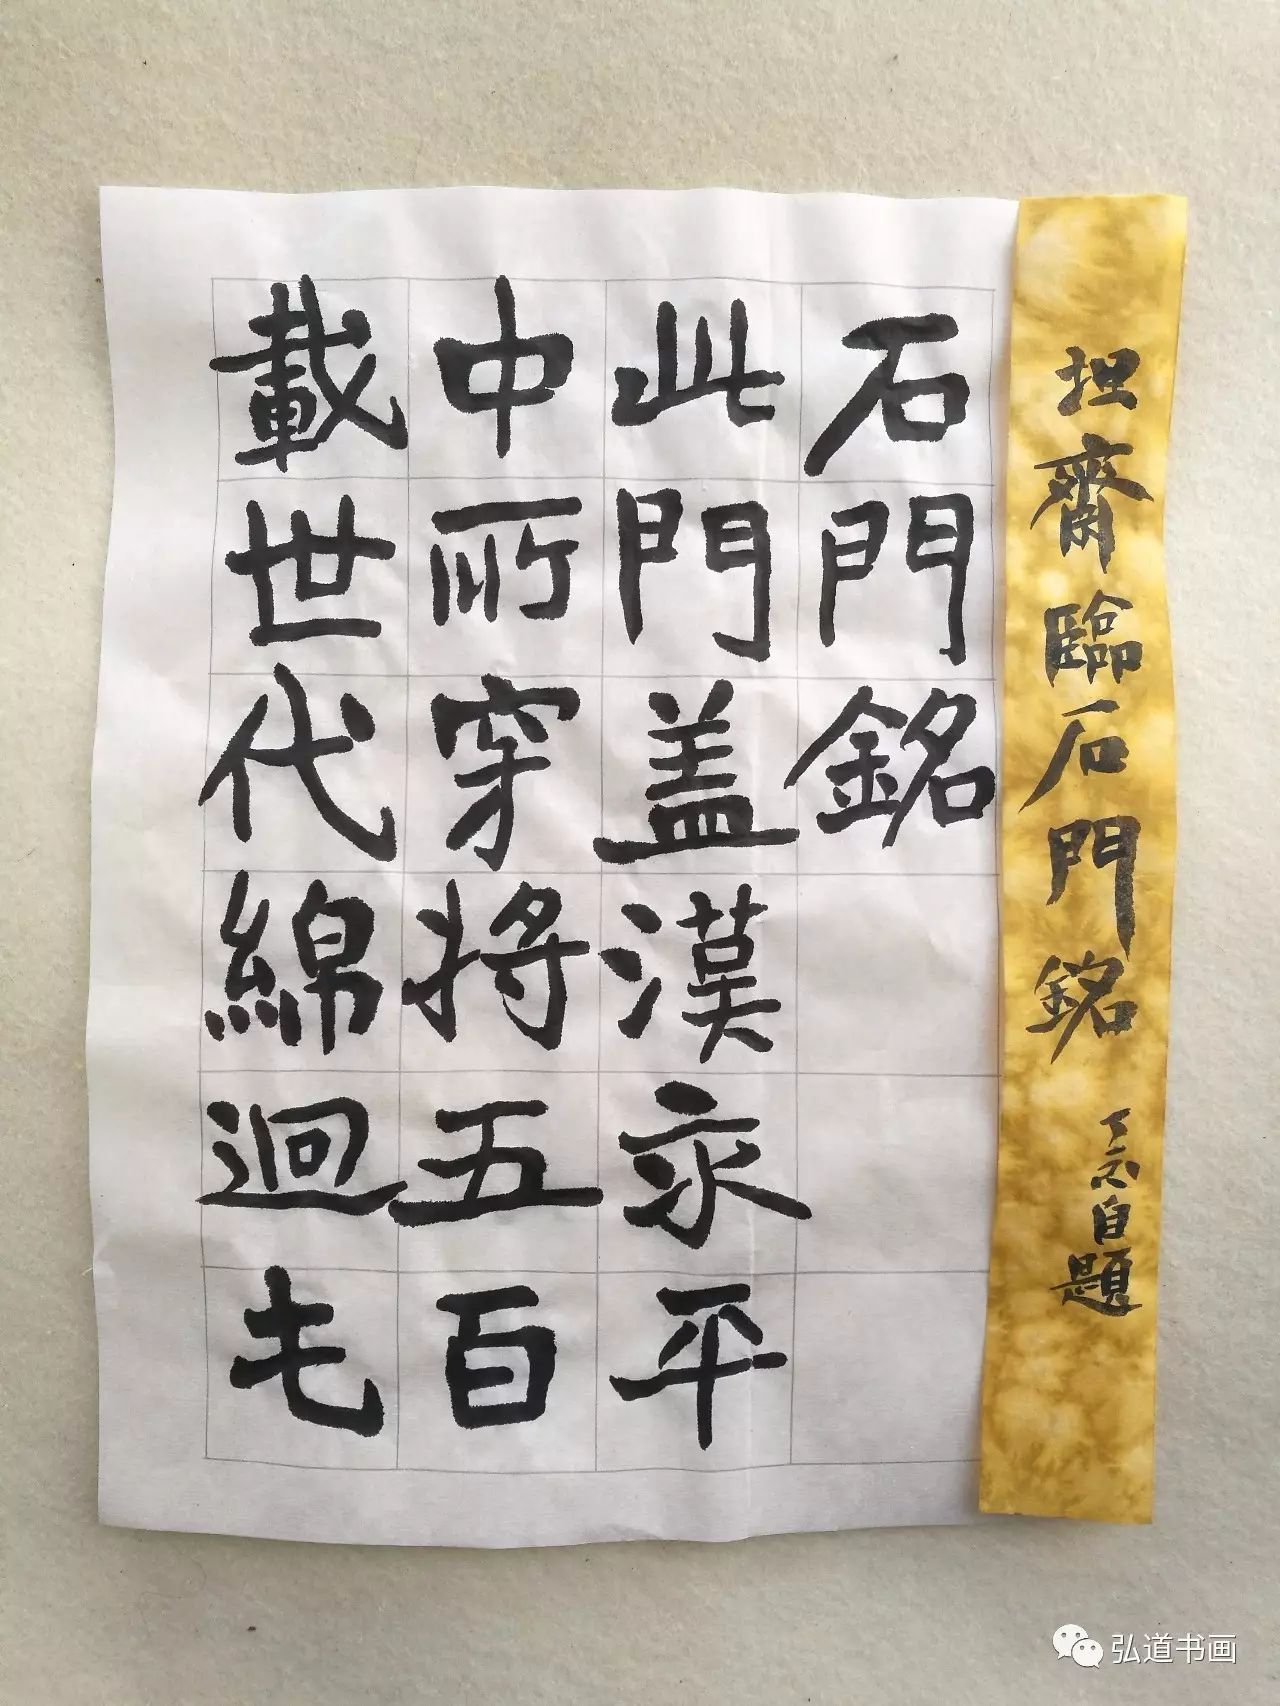 坦齋臨石門銘
自題
石門銘
此門盖漢永平
中所穿將五百
載世代綿迴屯
弘道书画